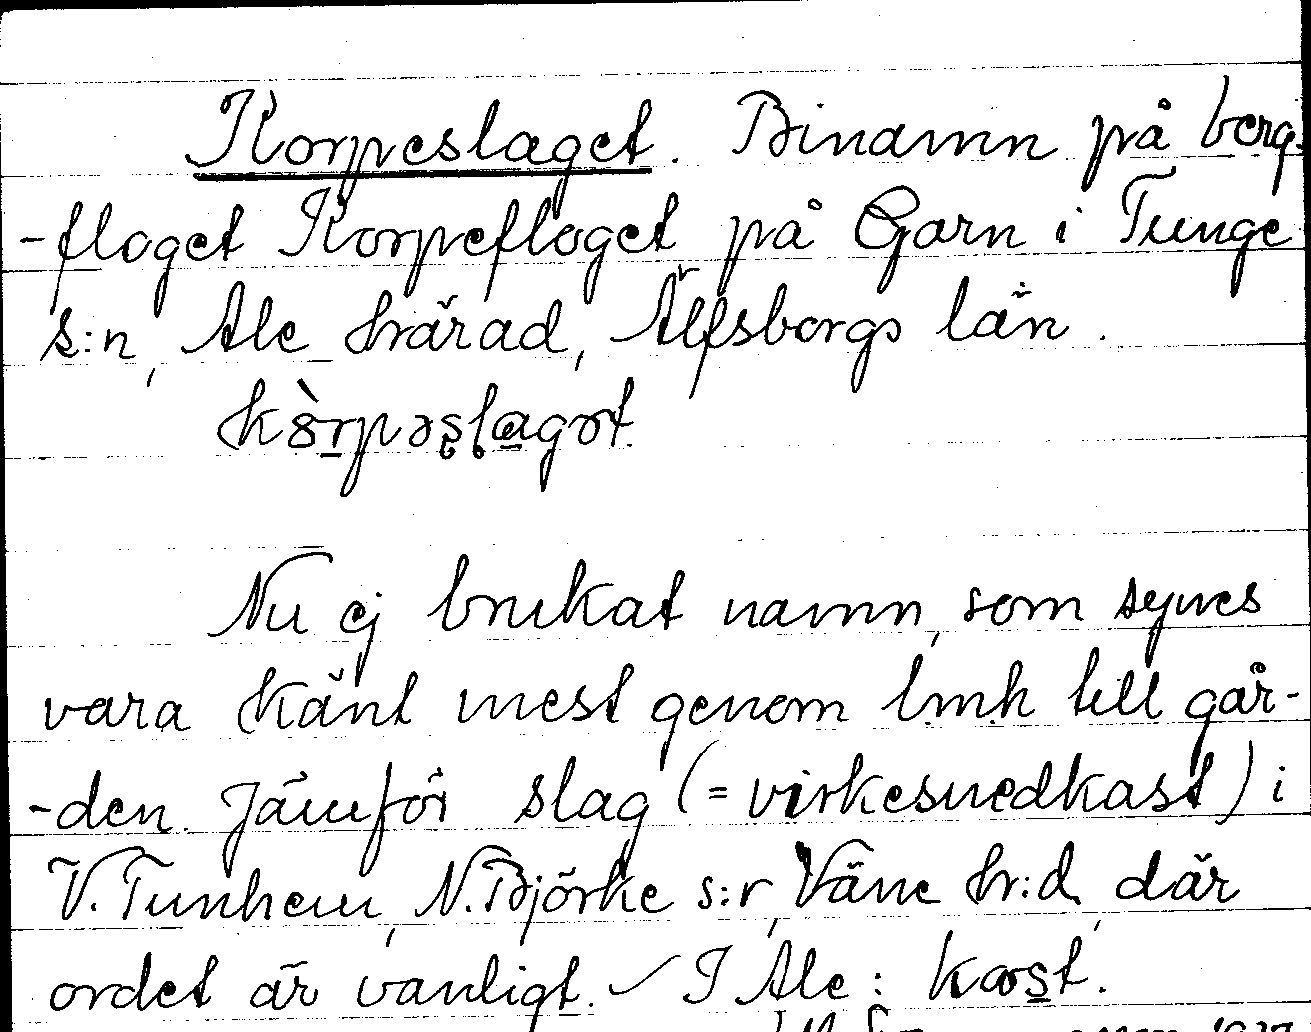 Korpeslaget. Binamn på berg-
-floget Korpefloget på Garn i Tunge
s:n, Ale härad, Älfsborgs län.
kòrpəslagət.
Nu ej brukat namn, som synes
vara känt mest genom lmh till går-
-den. Jämför slag (= virkesnedkast) i
V. Tunhem, N. Björke s:r, Väne hr:d, där
ordet är vanligt. I Ale: kast.